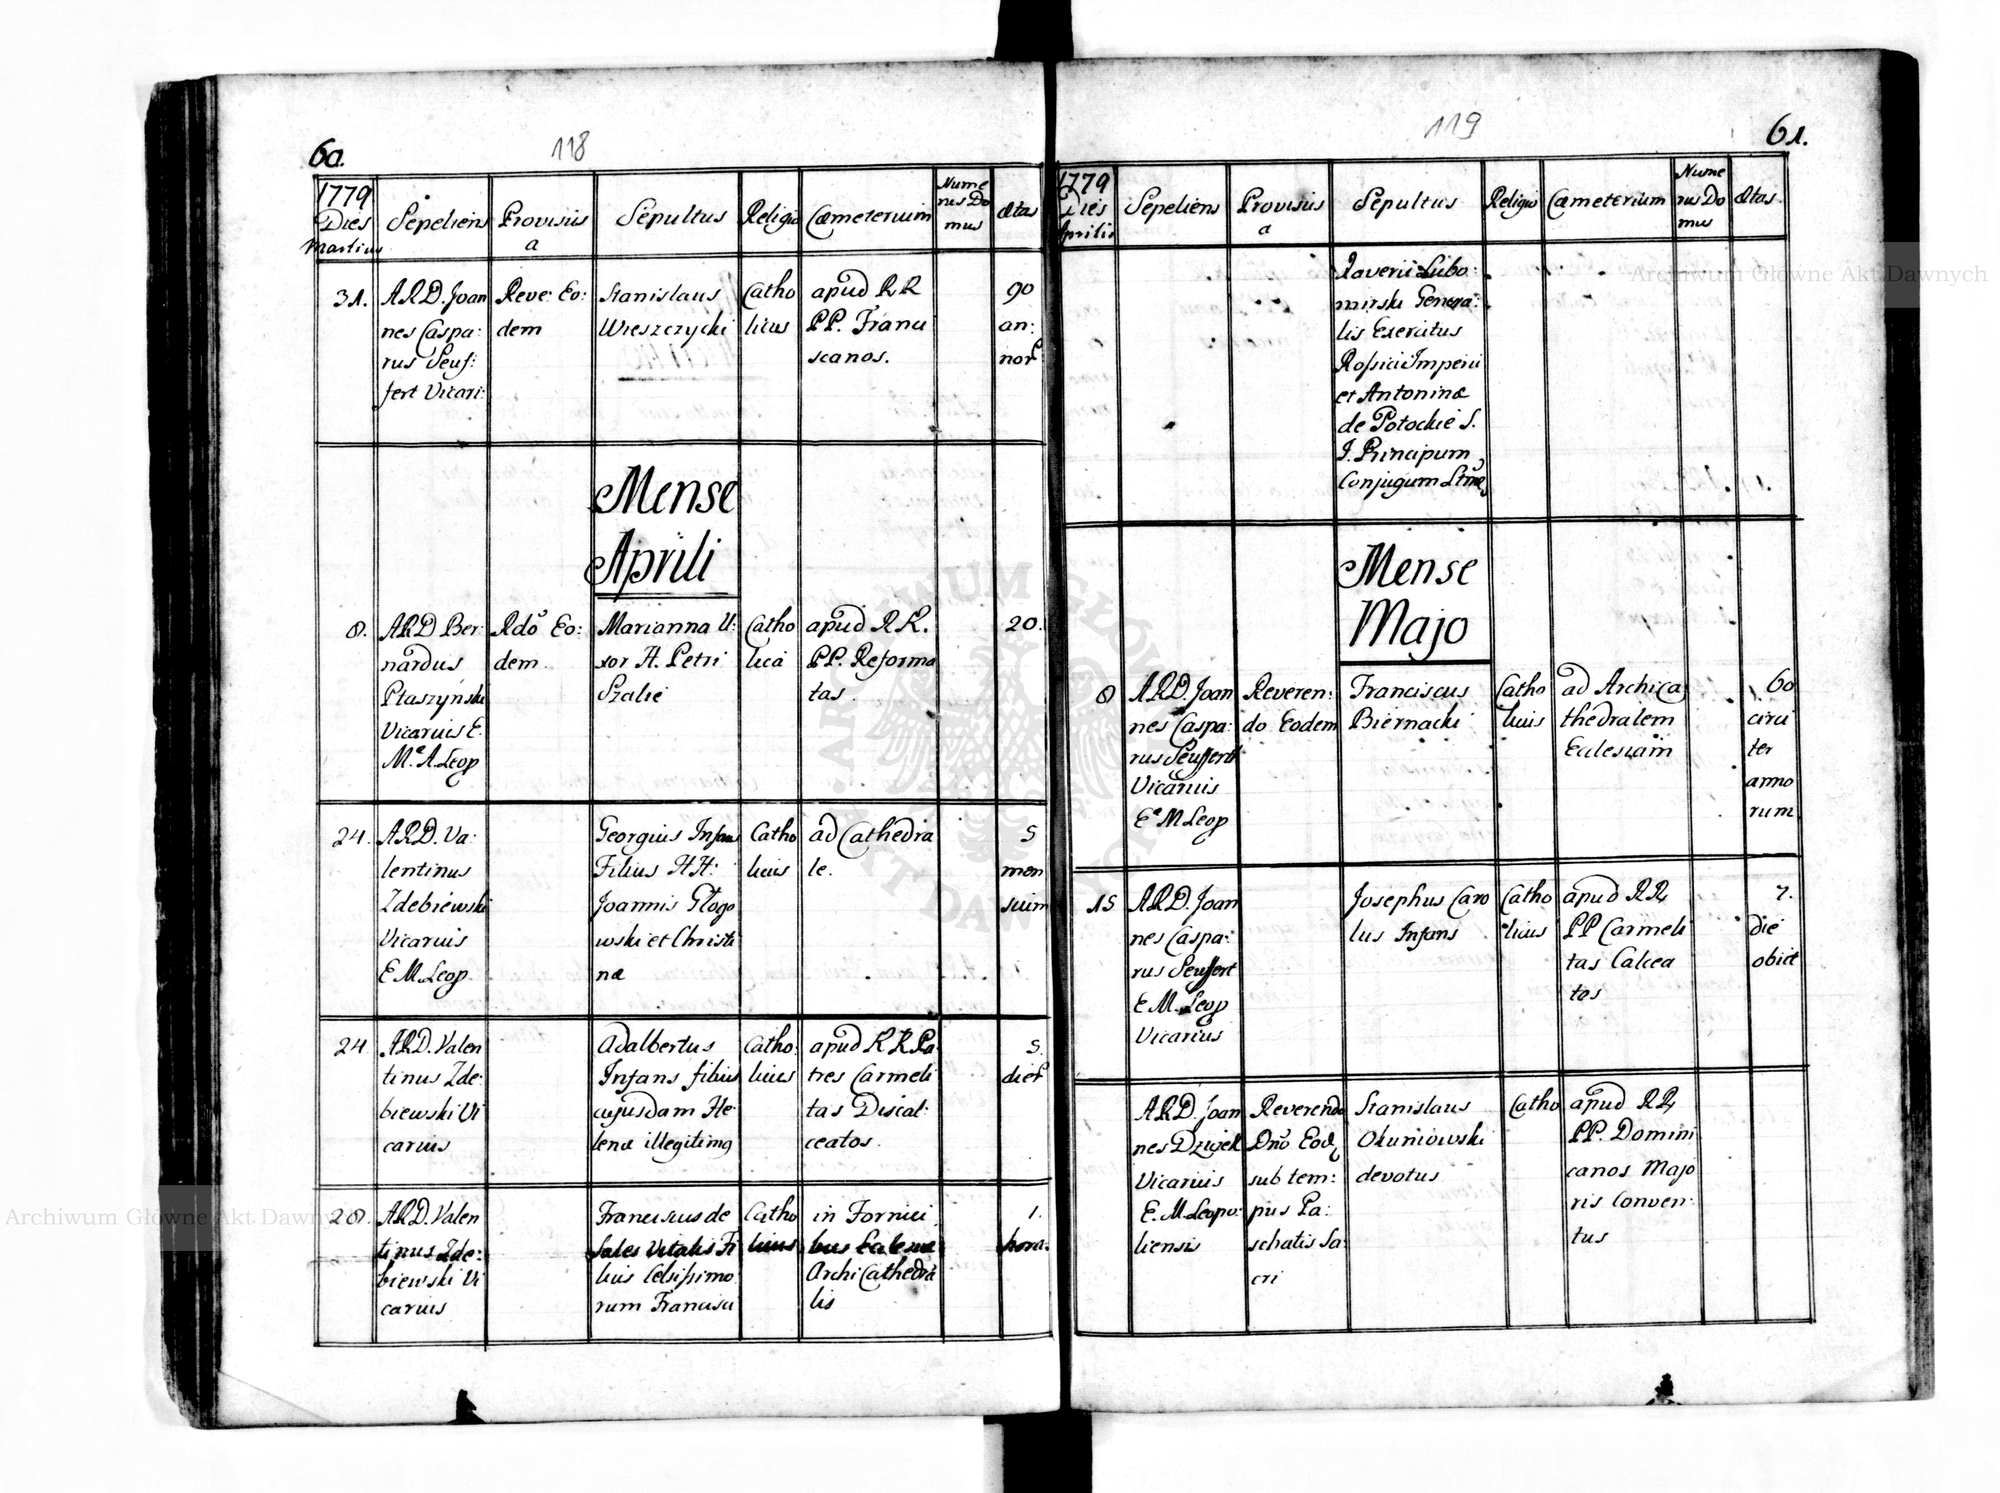 60.
118
1779
Dies
Martius
Sepeliens
Provisus
a
Sepultus
Religio
Cæmeterium
Nume
rus Do
mus
Ætas
31.
ARD. Joan
nes Caspa:
rus Seuf:
fert Vicari:
Reve: Eo:
dem
Stanislaus
Wieszczycki
Catho
licus
apud RR
PP. Franci
scanos.
90
an:
nor
Mense
Aprili
8.
ARD Ber:
nardus
Ptaszynski
Vicarius E.
M. A. Leop
Rdo Eo:
dem
Marianna U:
xor H. Petri
Szalié
Catho
lica
apud RR.
PP. Reforma
tas.
20.
24.
ARD. Va:
lentinus
Zdebiewski
Vicarius
E M. Leop.
Georgius Infans
Filius HH:
Joannis Głogo
wski et Christi
næ
Catho
licus
ad Cathedra
le.
5
men
sium
24.
ARD. Valen
tinus Zde:
biewski Vi
carius
Adalbertus
Infans filius
cujusdam He:
lenæ illegitima
Catho:
licus
apud RR Pa
tres Carmeli
tas Discal:
ceatos.
5.
dies
28.
ARD. Valen
tinus Zde:
biewski Vi
carius
Franciscus de
Sales Vitalis Fi
lius Celsissimo
rum Francisci
Catho
licus
in Fornici
bus Eclesiæ
ArchiCathedra
lis
1.
hora.
119
61.
1779
Dies
Aprilis
Sepeliens
Provisus
a
Sepultus
Religio
Cæmeterium
Nume
rus Do
mus
Ætas.
Xaverii Lubo:
mirski Genera:
lis Exercitus
Rossici Imperii
et Antoninæ
de Potockie S.
I. Principum
Conjugum Ltmes
Mense
Majo
8
ARD. Joan
nes Caspa:
rus Seuffert
Vicarius
E M Leop
Reveren:
do Eodem
Franciscus
Biernacki
Catho
licus
ad ArchiCa
thedralem
Eclesiam
60
circi
ter
anno
rum
15
ARD. Joan
nes Caspa:
rus Seuffert
E. M. Leop
Vicarius
Josephus Caro
lus Infans
Catho
licus
apud RR
PP Carmeli
tas Calcea
tos
7.
die
obiit
ARD. Joan
nes Dziżek
Vicarius
E. M. Leopo:
liensis
Reverendo
Dno Eod
sub tem:
pus Pa:
schatis Sa:
cri
Stanislaus
Okuniowski
devotus
Catho
apud RR
PP. Domini
canos Majo
ris Conven:
tus
Archiwum Główne Akt Dawnych
Archiwum Główne Akt Dawnych
ARCHIWUM GŁÓWNE AKT DAWNYCH